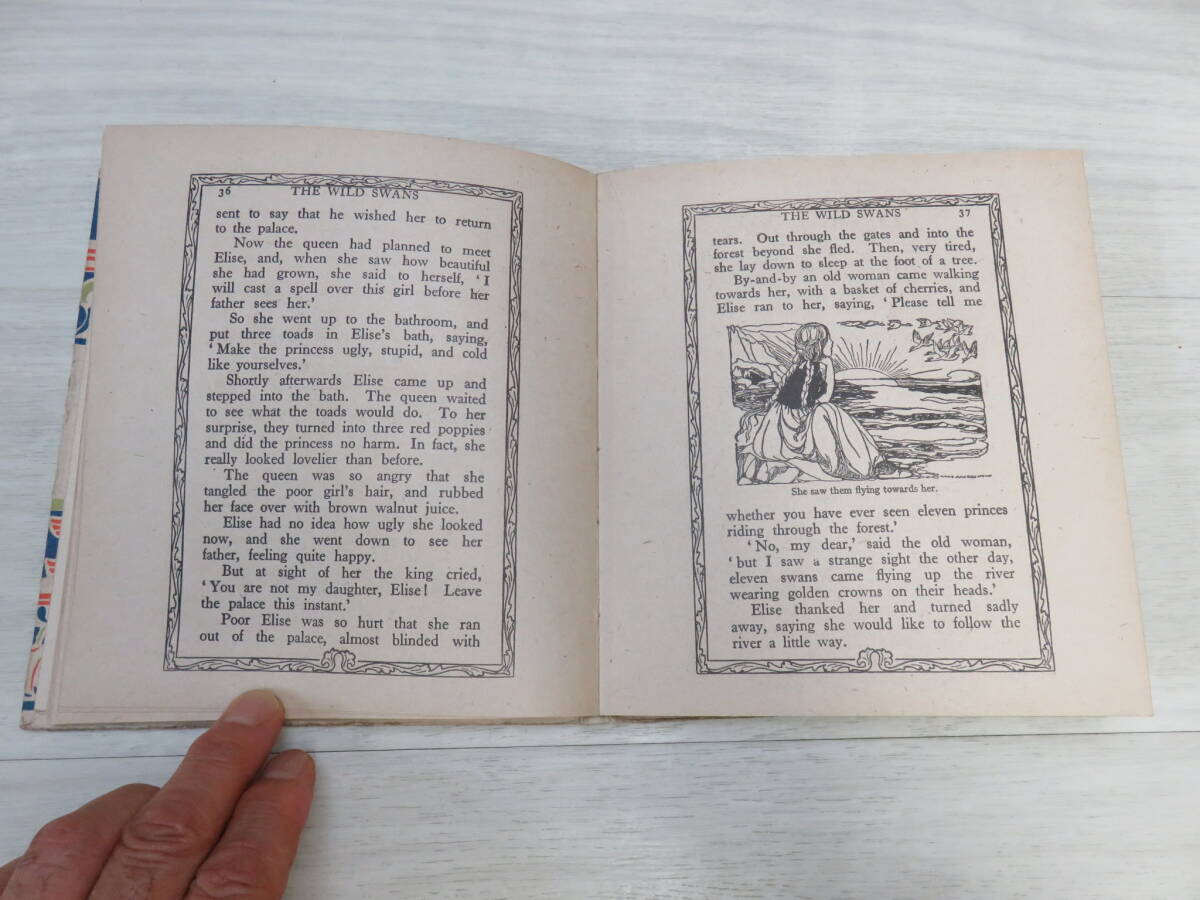 36 THE WILD SWANS
sent to say that he wished her to return
to the palace.
Now the queen had planned to meet
Elise, and, when she saw how beautiful
she had grown, she said to herself, ‘I
will cast a spell over this girl before her
father sees her.’
So she went up to the bathroom, and
put three toads in Elise’s bath, saying,
‘Make the princess ugly, stupid, and cold
like yourselves.’
Shortly afterwards Elise came up and
stepped into the bath. The queen waited
to see what the toads would do. To her
surprise, they turned into three red poppies
and did the princess no harm. In fact, she
really looked lovelier than before.
The queen was so angry that she
tangled the poor girl’s hair, and rubbed
her face over with brown walnut juice.
Elise had no idea how ugly she looked
now, and she went down to see her
father, feeling quite happy.
But at sight of her the king cried,
‘You are not my daughter, Elise! Leave
the palace this instant.’
Poor Elise was so hurt that she ran
out of the palace, almost blinded with
THE WILD SWANS 37
tears. Out through the gates and into the
forest beyond she fled. Then, very tired,
she lay down to sleep at the foot of a tree.
By-and-by an old woman came walking
towards her, with a basket of cherries, and
Elise ran to her, saying, ‘Please tell me
She saw them flying towards her.
whether you have ever seen eleven princes
riding through the forest.’
‘No, my dear,’ said the old woman,
‘but I saw a strange sight the other day,
eleven swans came flying up the river
wearing golden crowns on their heads.’
Elise thanked her and turned sadly
away, saying she would like to follow the
river a little way.